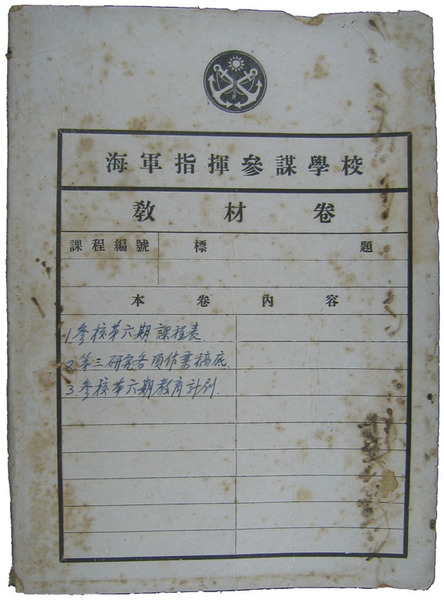 海軍指揮參謀學校
教材卷
課程編號 標題
本卷內容
1. 參校第六期課程表
2. 第三研究各項作書稿底
3. 參校第六期教育計劃